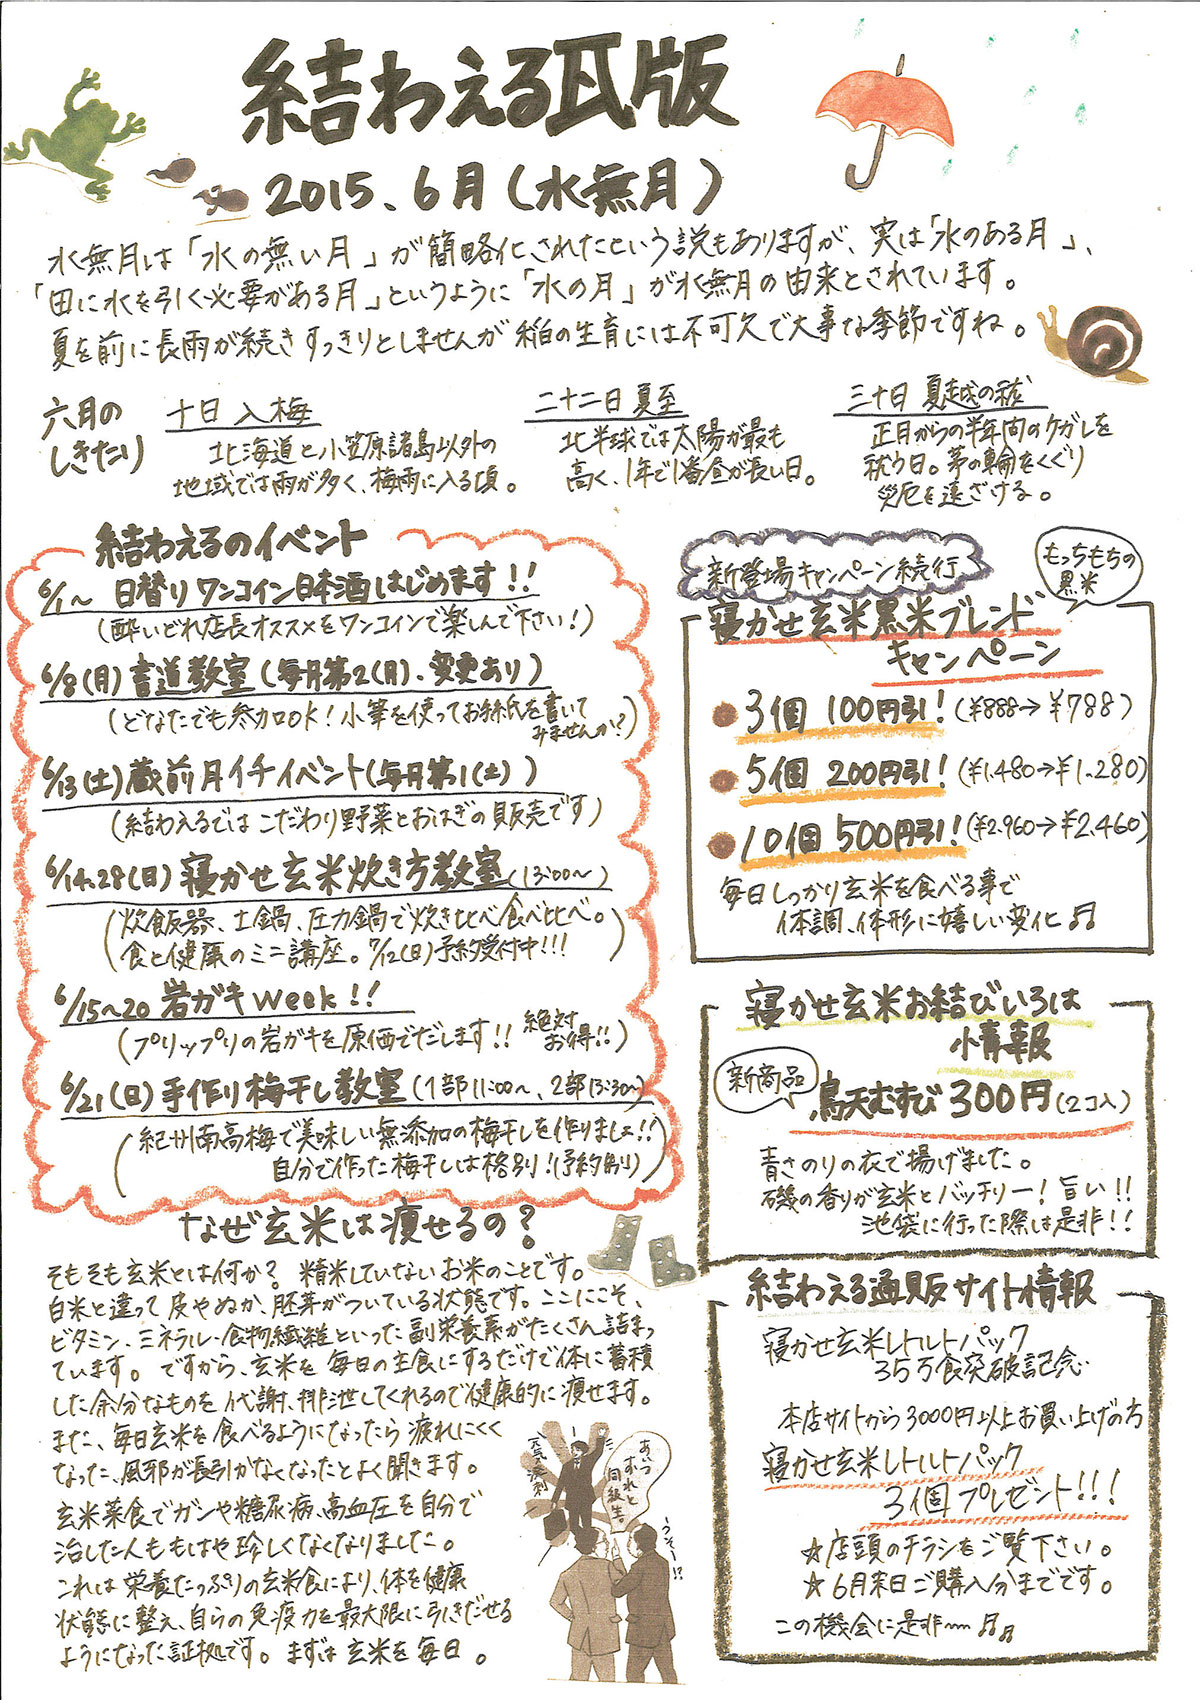 結わえる瓦版
2015.6月(水無月)
水無月は「水の無い月」が簡略化されたという説もありますが、実は「水のある月」、
「田に水を引く必要がある月」というように「水の月」が水無月の由来とされています。
夏を前に長雨が続きすっきりとしませんが稲の生育には不可欠で大事な季節ですね。
六月の
しきたり
十日 入梅
北海道と小笠原諸島以外の
地域では雨が多く、梅雨に入る頃。
二十二日 夏至
北半球では太陽が最も
高く、1年で1番昼が長い日。
三十日 夏越の祓
正月からの半年間のケガレを
祓う日。茅の輪をくぐり
災厄を遠ざける。
結わえるのイベント
6/1~ 日替り ワンコイン日本酒はじめます!!
(酔いどれ店長オススメをワンコインで楽しんで下さい!)
6/8(月) 書道教室(毎月第2(月)、変更あり)
(どなたでも参加OK!小筆を使ってお手紙を書いて
みませんか?)
6/13(土)蔵前月イチイベント(毎月第1(土))
(結わえるではこだわり野菜とおはぎの販売です)
6/14.28(日)寝かせ玄米炊き方教室(13:00~)
(炊飯器、土鍋、圧力鍋で炊き比べ食べ比べ。
食と健康のミニ講座。7/12(日)予約受付中!!!)
6/15~20 岩ガキweek!!
(プリップリの岩ガキを原価でだします!! 絶対
お得!!)
6/21(日)手作り梅干し教室(1部11:00~、2部13:30~)
(紀州南高梅で美味しい無添加の梅干しを作りましょ!!
自分で作った梅干しは格別!(予約制))
なぜ玄米は痩せるの?
そもそも玄米とは何か? 精米していないお米のことです。
白米と違って皮やぬか、胚芽がついている状態です。ここにこそ、
ビタミン、ミネラル・食物繊維といった副栄養素がたくさん詰まっ
ています。ですから、玄米を毎日の主食にするだけで体に蓄積
した余分なものを代謝、排泄してくれるので健康的に痩せます。
また、毎日玄米を食べるようになったら疲れにくく
なった、風邪が長引かなくなったとよく聞きます。
玄米菜食でガンや糖尿病、高血圧を自分で
治した人ももはや珍しくなくなりました。
これは栄養たっぷりの玄米食により、体を健康
状態に整え、自らの免疫力を最大限に引きだせる
ようになった証拠です。まずは玄米を毎日。
元気ハツラツ
あいつ
オレと
同級生。
ウソー!?
新登場キャンペーン続行
もっちもちの
黒米
寝かせ玄米黒米ブレンド
キャンペーン
3個 100円引!(¥888→¥788)
5個 200円引!(¥1,480→¥1,280)
10個 500円引!(¥2,960→¥2,460)
毎日しっかり玄米を食べる事で
体調、体形に嬉しい変化♫
寝かせ玄米お結びいろは
小情報
新商品
鳥天むすび 300円(2コ入)
青さのりの衣で揚げました。
磯の香りが玄米とバッチリー!旨い!!
池袋に行った際は是非!!
結わえる通販サイト情報
寝かせ玄米レトルトパック
35万食突破記念
本店サイトから3000円以上お買い上げの方
寝かせ玄米レトルトパック
3個プレゼント!!!
☆店頭のチラシをご覧下さい。
☆6月末日ご購入分までです。
この機会に是非~♫♫